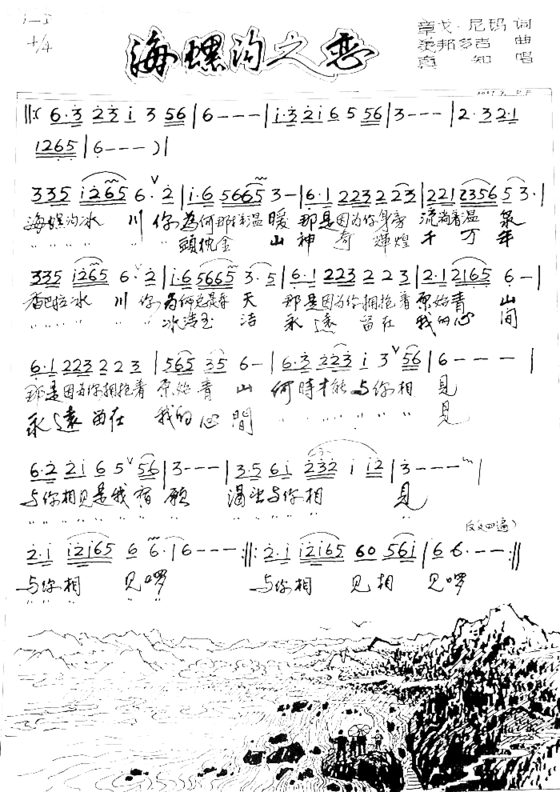 海螺沟之恋
章戈·尼玛 词
美邦多吉 曲
真 知 唱
6·3 23 i 3 56 | 6--- | i·3 2i 6 5 56 | 3--- | 2·3 2·1
1265 | 6---) |
335 i265 6·2 | i·6 5665 3- | 6·1 223 2 23 | 221 2356 5 3· |
海螺沟冰 川 你 為何那样温 暖 那是因为你身旁 流淌着温 泉
頭枕金 山 神 奇 輝煌 千 万 年
335 i265 6·2 | i·6 5665 3·5 | 6·1 223 2 2 3 | 2·1 2165 6- |
香巴拉冰 川 你 天 那是因为你拥抱着 原始青 山
冰清玉 洁 永 遠 留在 我的心 間
6·1 223 2 2 3 | 565 35 6- | 6·3 223 i 3 56 | 6--- |
那是因为你拥抱着 原始青 山 何時才能 与你相 見
永 遠 留在 我的心 間 見
6·2 2i 6 5 56 | 3--- | 3·5 6i 232 i i2 | 3--- |
与你相見是我宿 願 渴望与你相 見
(反复四遍)
2·i i2i65 6 6· | 6--- ‖: 2·i i2i65 60 56i | 6 6·-- :‖
与你相 見啰 与你相 見相 見啰